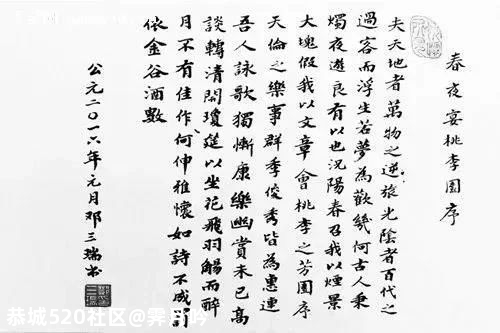 春夜宴桃李園序
夫天地者萬物之逆旅光陰者百代之
過客而浮生若夢為歡幾何古人秉
燭夜遊良有以也況陽春召我以煙景
大塊假我以文章會桃李之芳園序
天倫之樂事群季俊秀皆為惠連
吾人詠歌獨慚康樂幽賞未已高
談轉清開瓊筵以坐花飛羽觴而醉
月不有佳作何伸雅懷如詩不成罰
依金谷酒數
公元二〇一六年元月邓三瑞书
恭城520社区@